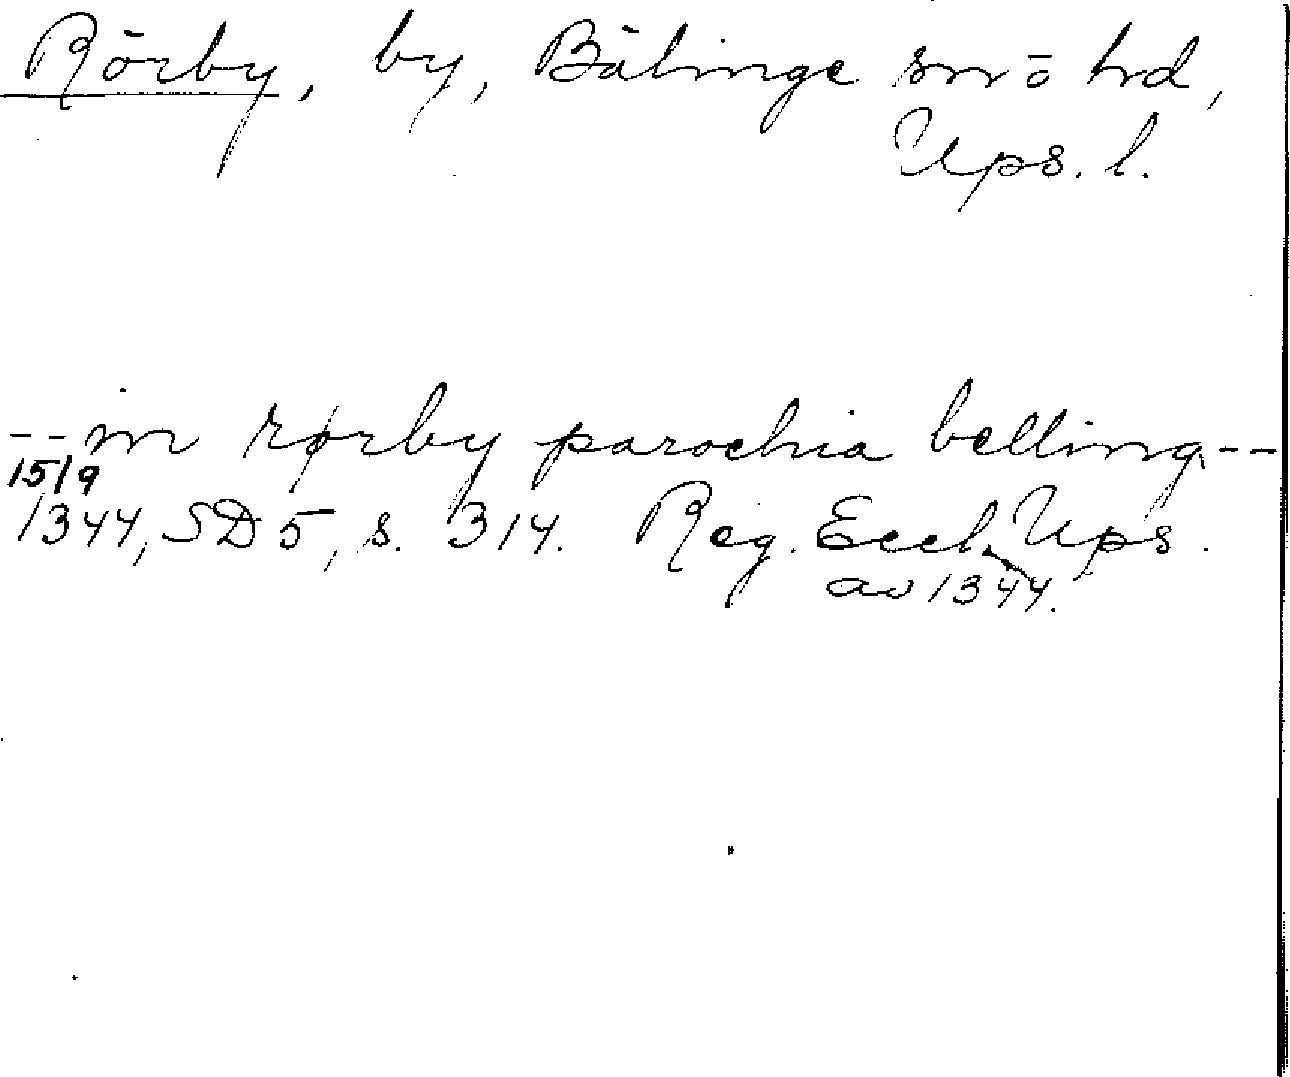 Rörby, by, Bälinge sn o hd,
Ups. l.
-- in rørby parochia belling --
15/9
1344, SD 5, s. 314. Reg. Eccl. Ups.
av 1344.